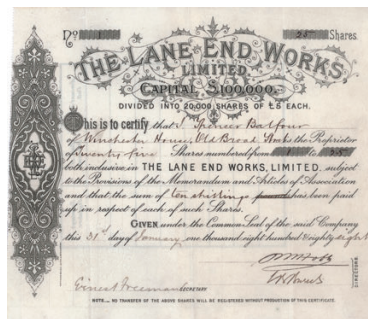 No 1 25 Shares.
THE LANE END WORKS
LIMITED.
CAPITAL £100,000.
DIVIDED INTO 20,000 SHARES OF £5 EACH.
This is to certify that J. Spencer Balfour
of Winchester House, Old Broad is the Proprietor
of Twenty five Shares numbered from 1 to 25
both inclusive in THE LANE END WORKS, LIMITED. subject
to the Provisions of the Memorandum and Articles of Association
and that the sum of Ten shillings has been paid
up in respect of each of such Shares.
GIVEN under the Common Seal of the said Company
this 31st day of January one thousand eight hundred & eighty eight
Ernest Freeman SECRETARY
NOTE.— NO TRANSFER OF THE ABOVE SHARES WILL BE REGISTERED WITHOUT PRODUCTION OF THIS CERTIFICATE.